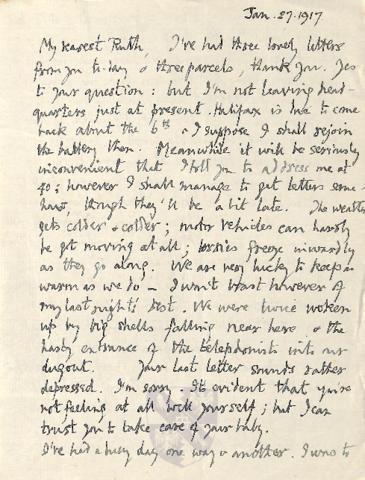 Jan. 27. 1917
My dearest Ruth, I've had three lovely letters
from you to-day & three parcels, thank you. Yes
to your question: but I'm not leaving head-
quarters just at present. Halifax is due to come
back about the 6th & I suppose I shall rejoin
the battery then. Meanwhile it will be seriously
inconvenient that I told you to address me at
40; however I shall manage to get letters some-
how, though they'll be a bit late. The weather
gets colder & colder; motor vehicles can hardly
be got moving at all; lorries freeze inwardly
as they go along. We are very lucky to keep as
warm as we do – I won't boast however of
my last night's rest. We were twice woken
up by big shells falling near here & the
hasty entrance of the telephonists into our
dugout. Your last letter sounds rather
depressed. I'm sorry. It's evident that you're
not feeling at all well yourself; but I can
trust you to take care of your baby.
I've had a busy day one way & another. I was to